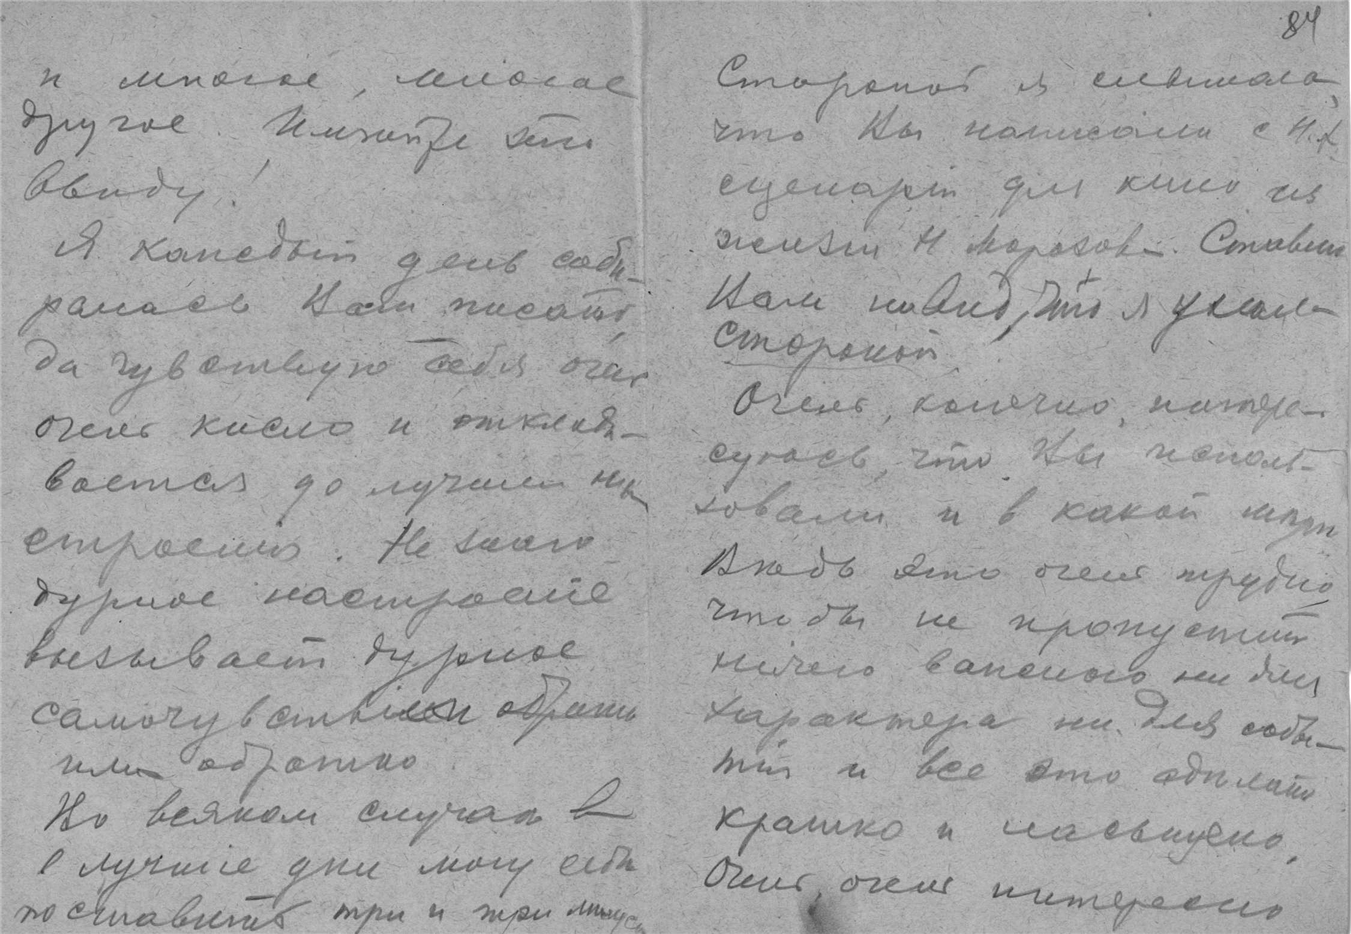 84
и многое, многое
другое. Имейте это
ввиду!
Я каждый день соби-
ралась Вам писать,
да чувствую себя очень
очень кисло и отклады-
вается до лучшего на-
строения. Не знаю
дурное настроение
вызывает дурное
самочувствие
или обратно.
Во всяком случае в
лучшие дни могу себе
поставить три и три минус
Стороной я слышала,
что Вы написали с Н.
сценарий для кино из
жизни Н. Морозова. Ставлю
Вам на вид, что я узнала
стороной.
Очень, конечно, интере-
суюсь, что Вы исполь-
зовали и в какой мере
Ведь это очень трудно
чтобы не пропустить
ничего важного ни для
характера ни для собы-
тий и все это сделать
кратко и насыщено.
Очень, очень интересно